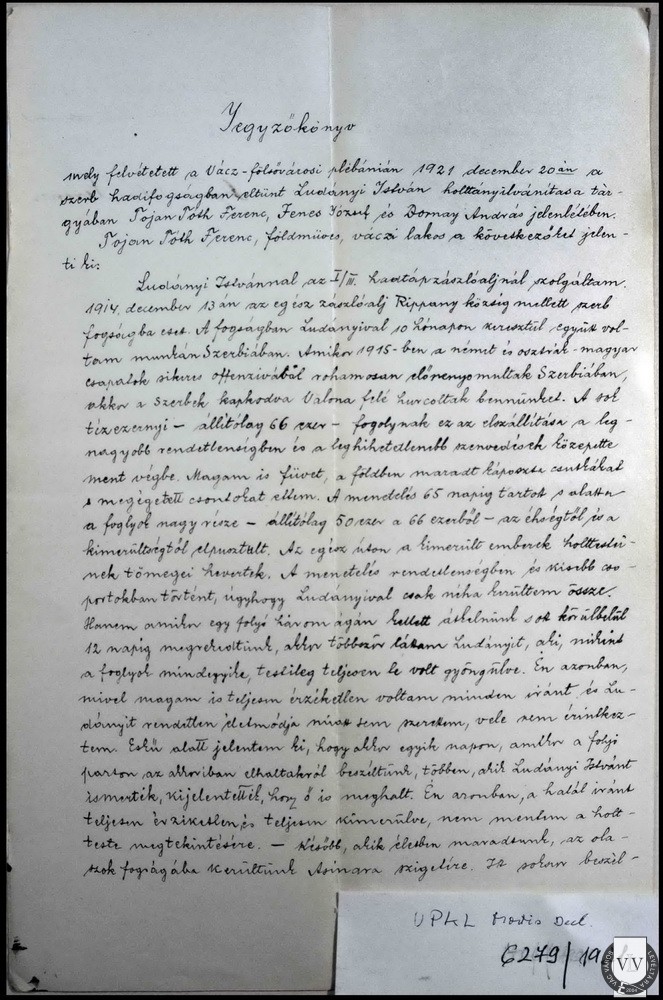 Jegyzőkönyv
mely felvétetett a Vácz-fölsővárosi plébánián 1921 december 20 án a
szerb hadifogságban eltünt Ludányi István holttányilvánitása tár-
gyában Tóján Tóth Ferenc, Jenes József és Dornay András jelenlétében.
Tóján Tóth Ferenc, földmüves, váczi lakos a következőket jelen-
ti ki:
Ludányi Istvánnal az I/III. hadtápzászlóaljnál szolgáltam.
1914. december 13 án az egész zászlóalj Rippany község mellett szerb
fogságba esett. A fogságban Ludányival 10 hónapon keresztül együtt vol-
tam munkán Szerbiában. Amikor 1915-ben a német és osztrák-magyar
csapatok sikeres offenzivából rohamosan előnyomultak Szerbiában,
akkor a Szerbek kapkodva Valona felé hurcoltak bennünket. A sok
tizezernyi - állitólag 66 ezer - fogolynak ez az elszállitása a leg-
nagyobb rendetlenségben és a leghihetetlenebb szenvedések közepette
ment végbe. Magam is füvet, a földben maradt káposzta csutkákat
s megégetett csontokat ettem. A menetelés 65 napig tartott s alatta
a foglyok nagy része - állitólag 50 ezer a 66 ezerből - az éhségtől és a
kimerültségtől elpusztult. Az egész úton a kimerült emberek holttestei-
nek tömegei hevertek. A menetelés rendetlenségben és kisebb cso-
portokban történt, úgyhogy Ludányival csak néha kerültem össze.
Hanem amikor egy folyó három ágán kellett átkelnünk s ott körülbelül
12 napig megrekedtünk, akkor többször láttam Ludányit, aki, mikint
a foglyok mindegyike, testileg teljesen le volt gyöngülve. Én azonban,
mivel magam is teljesen érzéketlen voltam minden iránt és Lu-
dányit rendetlen életmódja miatt sem szerettem, vele nem érintkez-
tem. Eskü alatt jelentem ki, hogy akkor egyik napon, amikor a folyó
parton az akkoriban elhaltakról beszéltünk, többen, akik Ludányi Istvánt
ismerték, kijelentették, hogy ő is meghalt. Én azonban, a halál iránt
teljesen érzéketlen és teljesen kimerülve, nem mentem a holt-
teste megtekintésére. - Később, akik életben maradtunk, az ola-
szok fogságába kerültünk Asinara szigetére. Itt sokan beszél-
VPKL
6279/19
VÁC VÁROS LEVÉLTÁRA